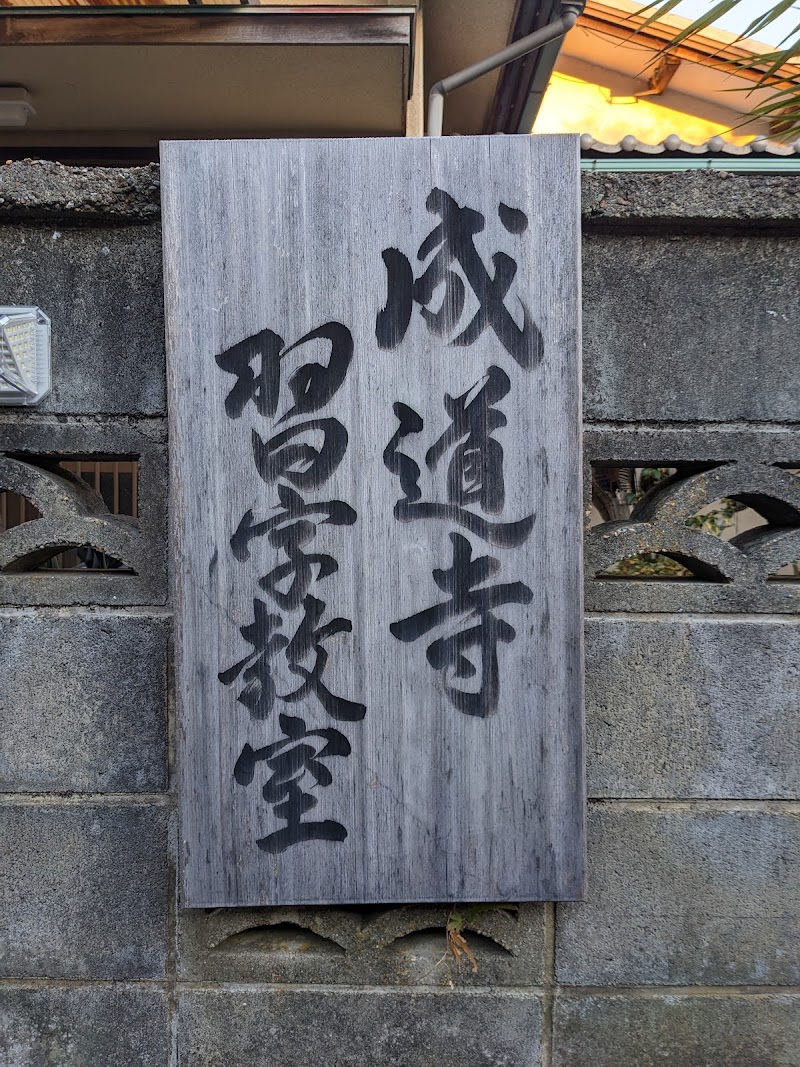 成道寺
習字教室